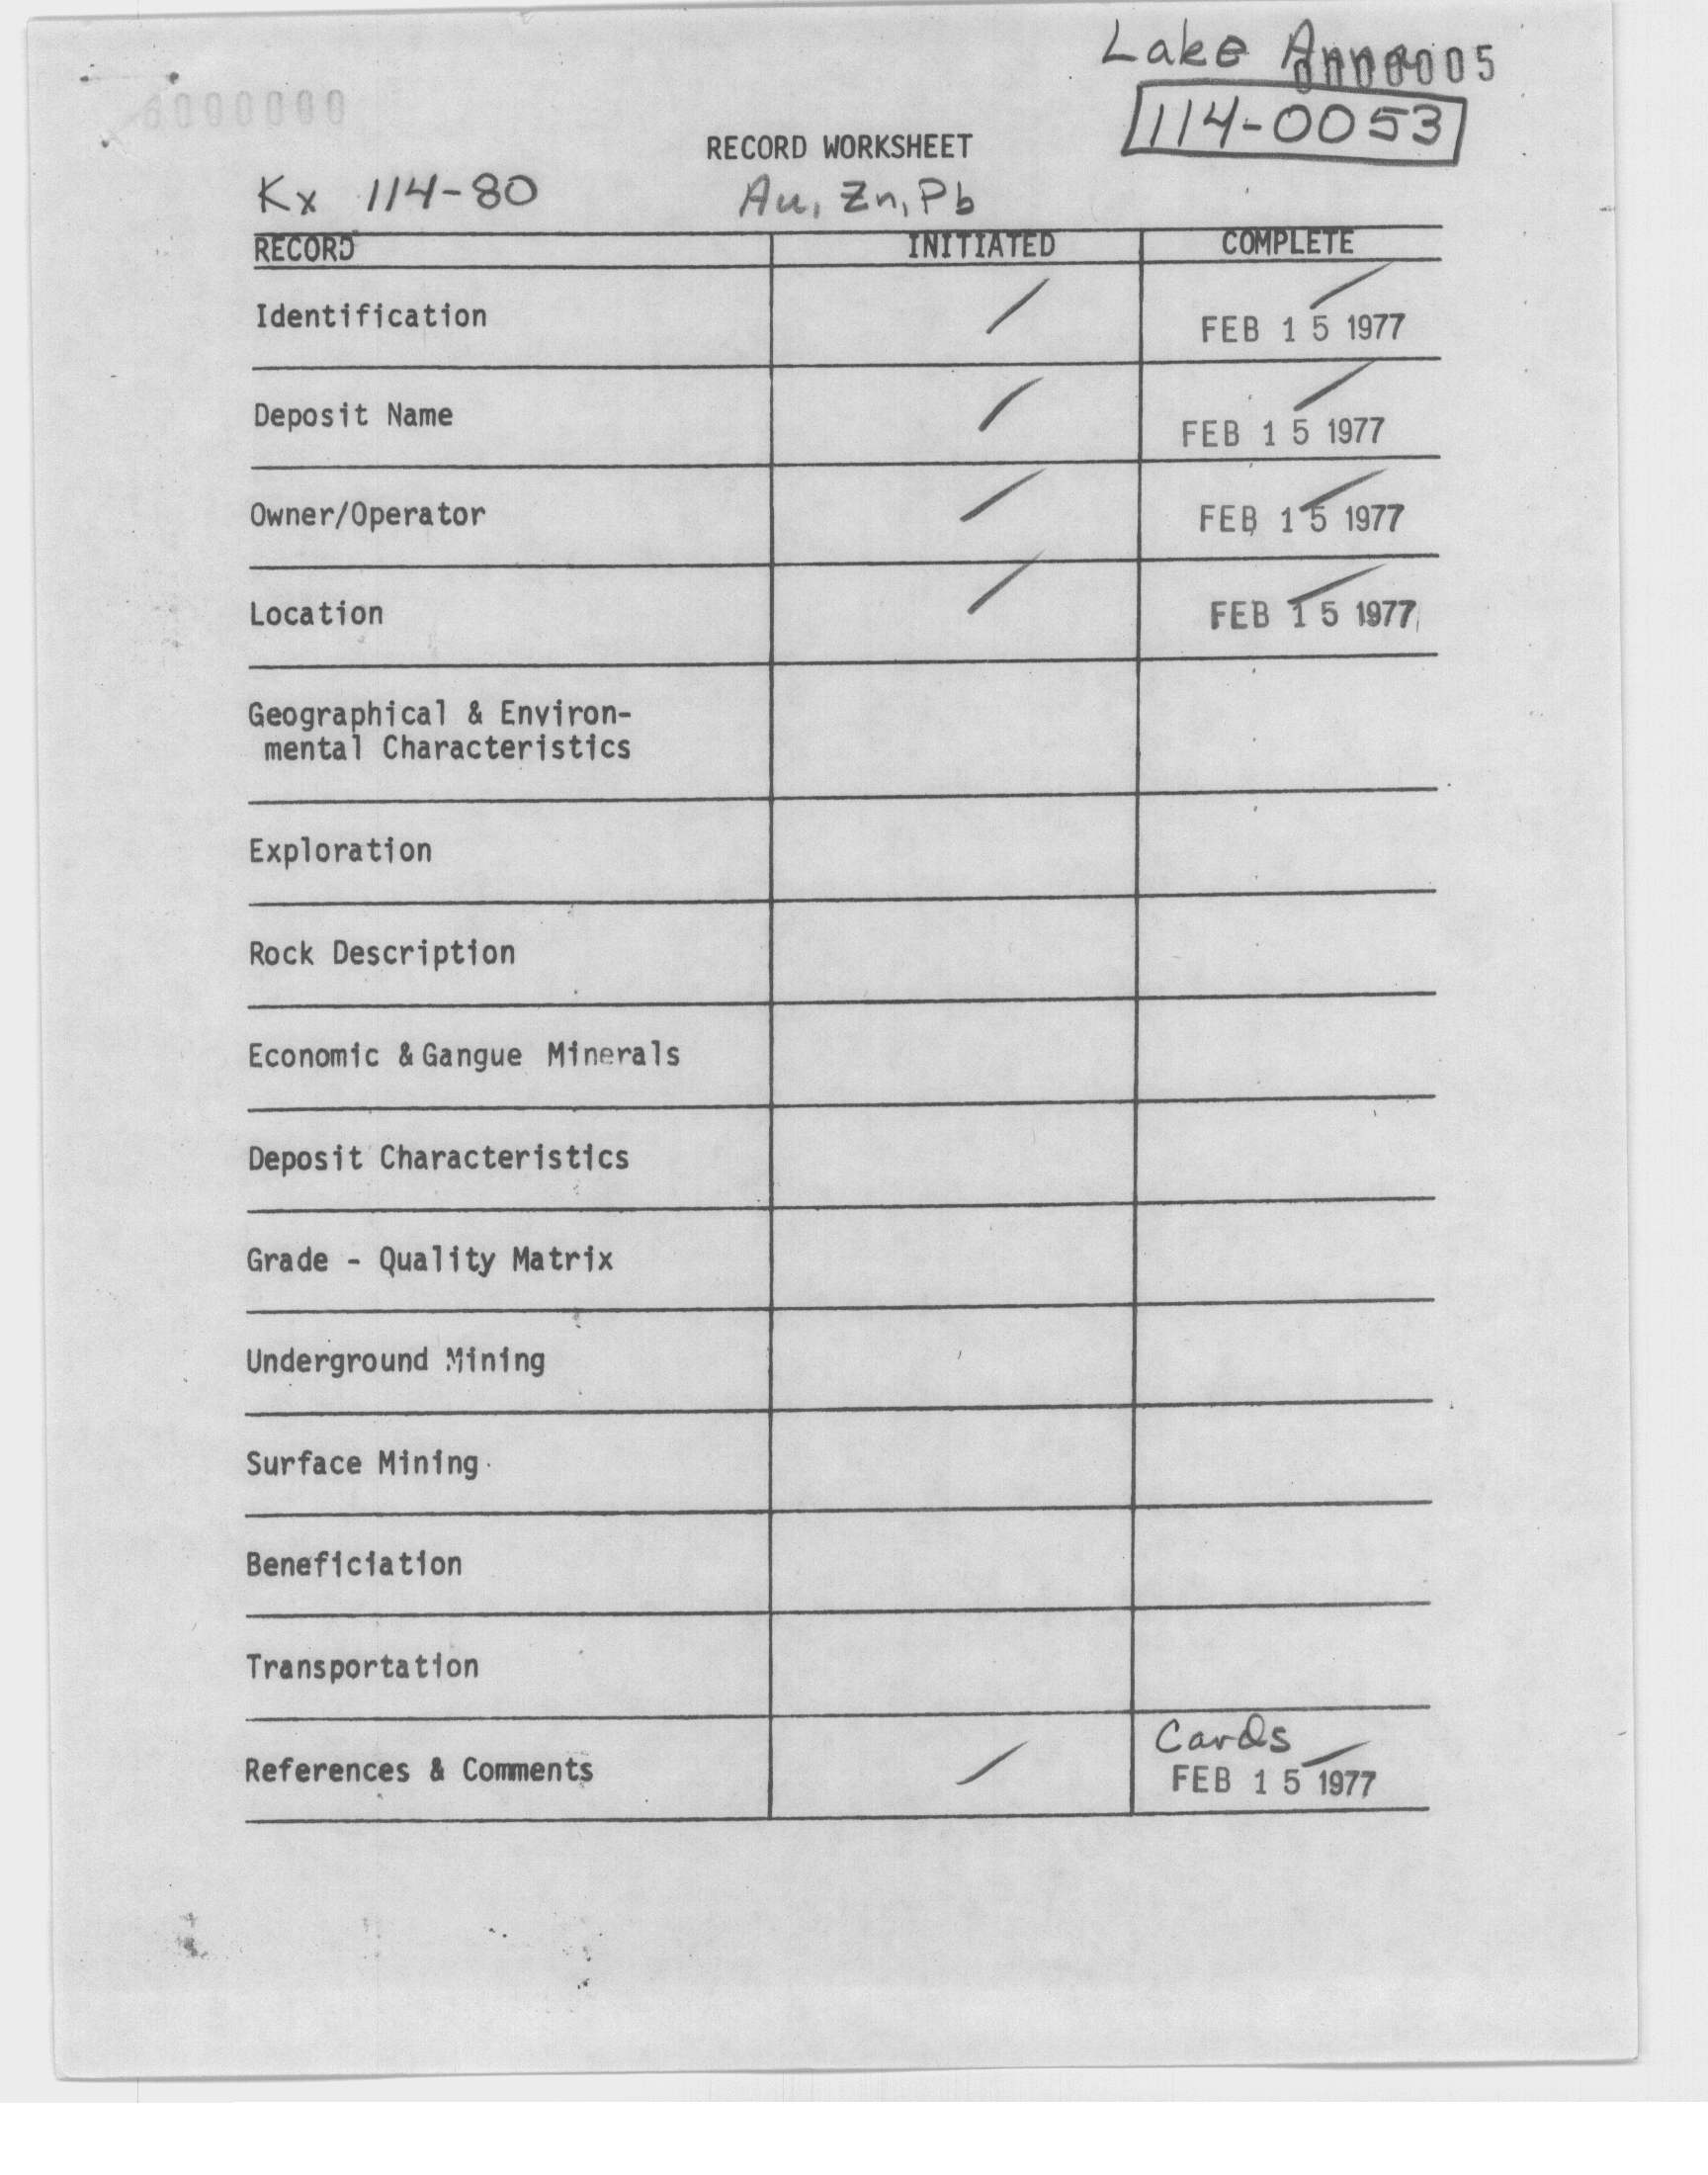 Lake Anna
0000005
0000000
114-0053
RECORD WORKSHEET
Kx 114-80
Au, Zn, Pb
RECORD INITIATED COMPLETE
Identification / /
FEB 15 1977
Deposit Name / /
FEB 15 1977
Owner/Operator / /
FEB 15 1977
Location / /
FEB 15 1977
Geographical & Environ-
mental Characteristics
Exploration
Rock Description
Economic & Gangue Minerals
Deposit Characteristics
Grade - Quality Matrix
Underground Mining
Surface Mining
Beneficiation
Transportation
Cards
References & Comments / /
FEB 15 1977